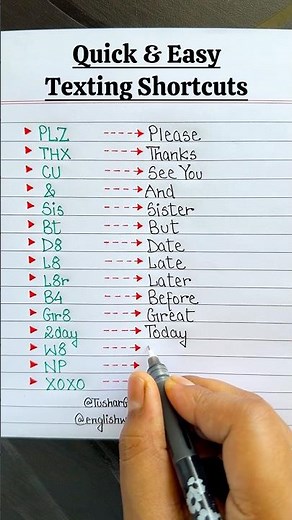 Quick & Easy
Texting Shortcuts
PLZ Please
THX Thanks
CU See You
& And
Sis Sister
Bt But
D8 Date
L8 Late
L8r Later
B4 Before
Gr8 Great
2day Today
W8
NP
XOXO